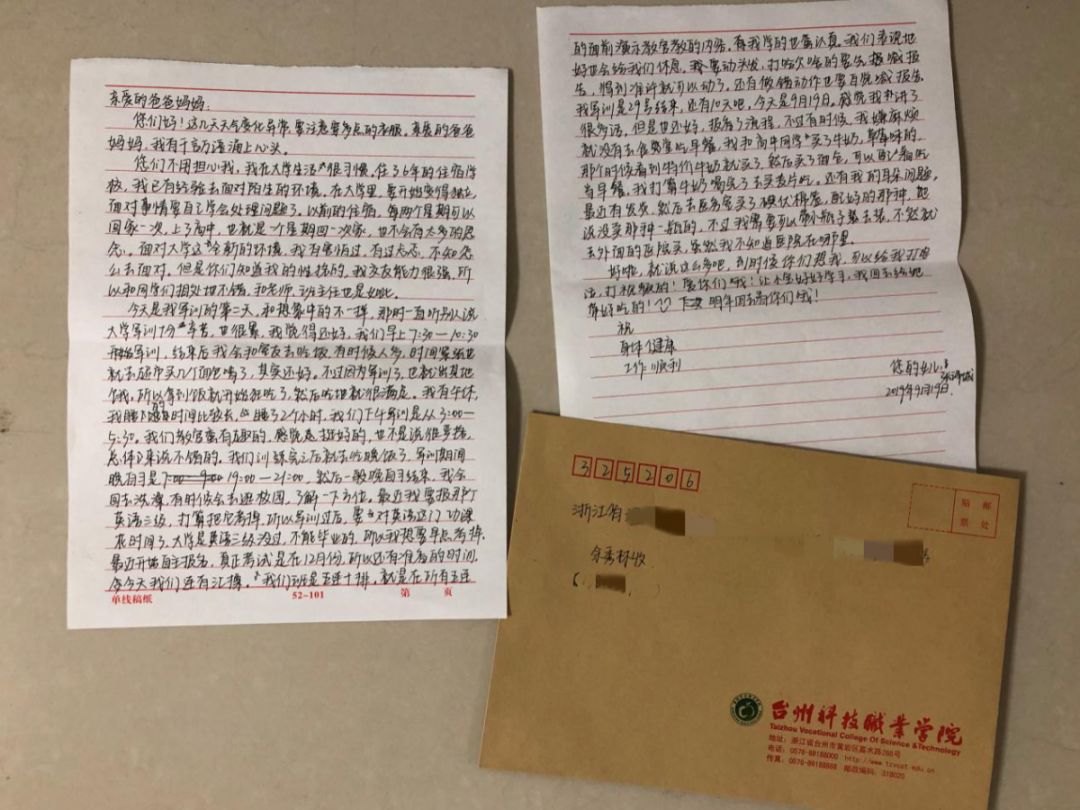 亲爱的爸爸妈妈:
您们好!这几天天气变化异常,要注意要多点的衣服。亲爱的爸爸
妈妈,我有千言万语涌上心头。
您们不用担心我,我在大学生活很习惯。住了6年的住宿学
校,我已有经验去面对陌生的环境。在大学里,要开始变得独立,
面对事情要自己学会处理问题了。以前的住宿,每两个星期可以
回家一次,上了高中,也就是一个星期回一次家,也不会有太多的思
念。面对大学这个全新的环境,我有害怕过,有过忐忑,不知怎
么去面对,但是你们知道我的性格的,我交友能力很强,所
以和同学们相处也不错,和老师,班主任也是如此。
今天是我军训的第二天,和想象中的不一样,那时一直听别人说
大学军训十分辛苦,也很累,我觉得还好。我们早上7:30—10:30
开始军训,结束后我会和室友去吃饭,有时候人多,时间紧张也
就去超市买几个面包喝了,其实还好。不过因为军训了,也就出其地
饿,所以拿到饭就开始狂吃了,然后吃地就很满足。我有午休,
我睡的时间比较长,睡了2个小时,我们下午军训是从3:00—
5:30。我们教官蛮有趣的,感觉是挺好的,也不是说很严格,
总体来说不错的。我们训练完之后就去吃晚饭了。军训期间
晚自习是19:00—21:00,然后一般晚自习结束,我会
回去洗澡,有时候会去逛校园,了解一下方位。最近我要报那个
英语三级,打算把它考掉,所以军训过后,要对英语这门功课
花时间了,大学是英语三级没过,不能毕业的,所以我想要早点考掉,
最近开始自主报名,真正考试是在12月份,所以还有准备的时间,
今天我们还有汇操。我们班是五连十排,就是在所有五连
单线稿纸 52-101 第 页
的面前演示教官教的内容。看我学的也蛮认真。我们表现地
好也会给我们休息。我要动头发,打哈欠啥的要先喊报
告,得到准许就可以动了。还有做错动作也要自觉喊报告。
我军训是29号结束,还有10天吧,今天是9月19日。感觉我补讲了
很多话,但是也还好,报备了流程,不过有时候,我嫌麻烦
就没有去食堂吃早餐,我和高中同学买了牛奶,草莓味的,
那个时候看到特价牛奶就买了,然后买了面包,可以
当早餐,我打算牛奶喝完了去买麦片吃。还有我的耳朵问题,
最近有发炎,然后去医务室买了碘伏棉签,配好的那种,她
说没卖那种一瓶的,不过我需要可以拿小瓶子装去装,不然就
去外面的医院买,虽然我不知道医院在哪里。
好啦,就说这么多吧,到时候你们想我,可以给我打电
话,打视频的!爱你们哦!让小宝好好学习,我回去给她
带好吃的!明年回去看你们哦!
祝
身体健康
工作顺利
您的女儿:
2019年9月19日
325206
贴 邮
票 处
浙江省
余秀林收
台州科技职业学院
Taizhou Vocational College Of Science &Technology
地址:浙江省台州市黄岩区嘉木路288号
电话:0576-89188000 http://www.tzvcst.edu.cn
传真:0576-89188888 邮政编码:318020